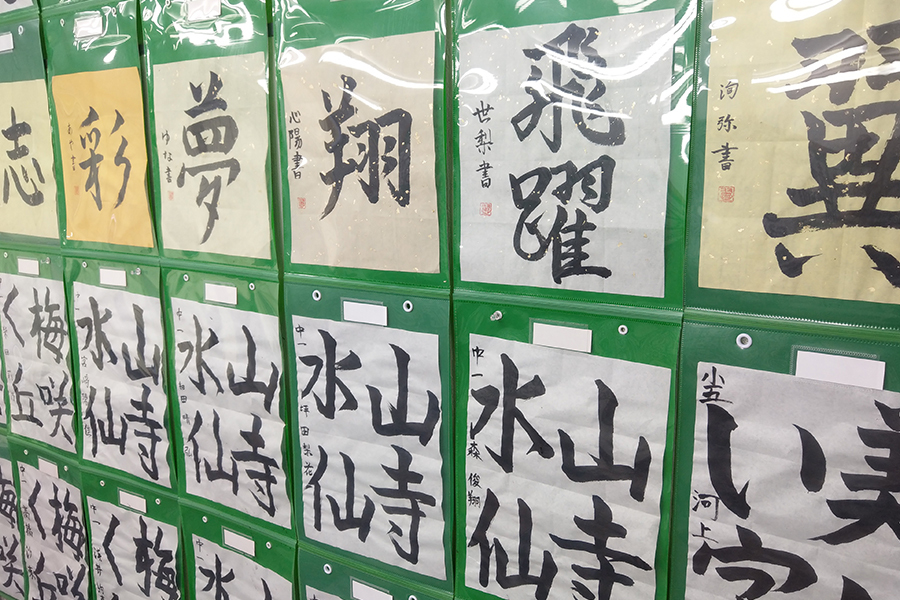 志
彩
夢
ゆな書
翔
心陽書
飛躍
世梨書
翼
洵弥書
梅咲
く丘
山寺
水仙
山寺
水仙
中一
山寺
水仙
中一 坪田梨花
山寺
水仙
中一 森俊翔
美
い
小五 河上
梅咲
梅咲
く
梅
く
山
水
中一